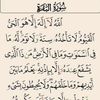 سُورَةُ البَقَرَةِ
اللَّهُ لَا إِلَٰهَ إِلَّا هُوَ الْحَيُّ
الْقَيُّومُ لَا تَأْخُذُهُ سِنَةٌ وَلَا نَوْمٌ لَّهُ مَا
فِي السَّمَٰوَٰتِ وَمَا فِي الْأَرْضِ مَن ذَا الَّذِي
يَشْفَعُ عِندَهُ إِلَّا بِإِذْنِهِ يَعْلَمُ مَا بَيْنَ
أَيْدِيهِمْ وَمَا خَلْفَهُمْ وَلَا يُحِيطُونَ بِشَيْءٍ